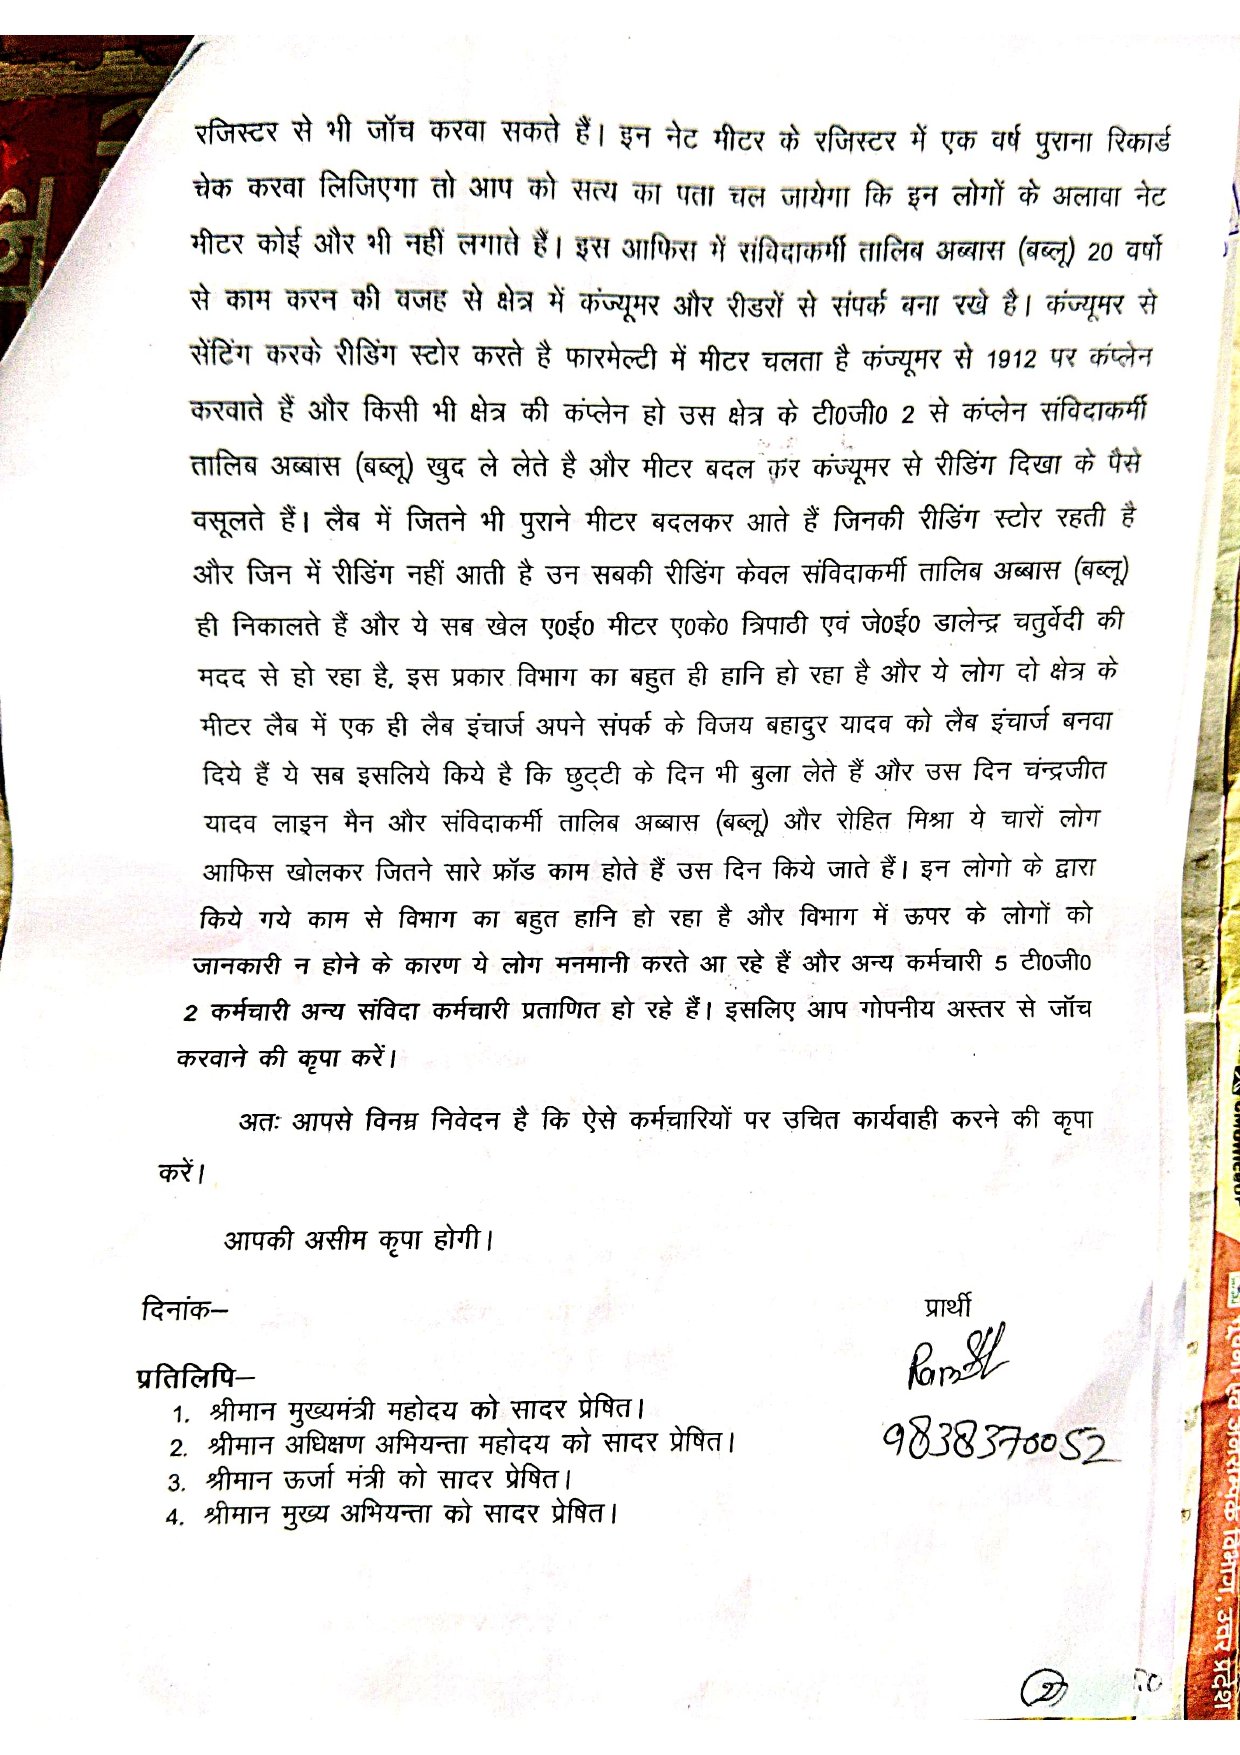 रजिस्टर से भी जॉच करवा सकते हैं। इन नेट मीटर के रजिस्टर में एक वर्ष पुराना रिकार्ड
चेक करवा लिजिएगा तो आप को सत्य का पता चल जायेगा कि इन लोगों के अलावा नेट
मीटर कोई और भी नहीं लगाते हैं। इस आफिस में संविदाकर्मी तालिब अब्बास (बब्लू) 20 वर्षो
से काम करन की वजह से क्षेत्र में कंज्यूमर और रीडरों से संपर्क बना रखे है। कंज्यूमर से
सेंटिंग करके रीडिंग स्टोर करते है फारमेल्टी में मीटर चलता है कंज्यूमर से 1912 पर कंप्लेन
करवाते हैं और किसी भी क्षेत्र की कंप्लेन हो उस क्षेत्र के टी0जी0 2 से कंप्लेन संविदाकर्मी
तालिब अब्बास (बब्लू) खुद ले लेते है और मीटर बदल कर कंज्यूमर से रीडिंग दिखा के पैसे
वसूलते हैं। लैब में जितने भी पुराने मीटर बदलकर आते हैं जिनकी रीडिंग स्टोर रहती है
और जिन में रीडिंग नहीं आती है उन सबकी रीडिंग केवल संविदाकर्मी तालिब अब्बास (बब्लू)
ही निकालते हैं और ये सब खेल ए0ई0 मीटर ए0के0 त्रिपाठी एवं जे0ई0 डालेन्द्र चतुर्वेदी की
मदद से हो रहा है, इस प्रकार विभाग का बहुत ही हानि हो रहा है और ये लोग दो क्षेत्र के
मीटर लैब में एक ही लैब इंचार्ज अपने संपर्क के विजय बहादुर यादव को लैब इंचार्ज बनवा
दिये हैं ये सब इसलिये किये है कि छुट्टी के दिन भी बुला लेते हैं और उस दिन चंन्द्रजीत
यादव लाइन मैन और संविदाकर्मी तालिब अब्बास (बब्लू) और रोहित मिश्रा ये चारों लोग
आफिस खोलकर जितने सारे फ्रॉड काम होते हैं उस दिन किये जाते हैं। इन लोगो के द्वारा
किये गये काम से विभाग का बहुत हानि हो रहा है और विभाग में ऊपर के लोगों को
जानकारी न होने के कारण ये लोग मनमानी करते आ रहे हैं और अन्य कर्मचारी 5 टी0जी0
2 कर्मचारी अन्य संविदा कर्मचारी प्रताणित हो रहे हैं। इसलिए आप गोपनीय अस्तर से जॉच
करवाने की कृपा करें।
अतः आपसे विनम्र निवेदन है कि ऐसे कर्मचारियों पर उचित कार्यवाही करने की कृपा
करें।
आपकी असीम कृपा होगी।
दिनांक– प्रार्थी
9838370052
प्रतिलिपि–
1. श्रीमान मुख्यमंत्री महोदय को सादर प्रेषित।
2. श्रीमान अधिक्षण अभियन्ता महोदय को सादर प्रेषित।
3. श्रीमान ऊर्जा मंत्री को सादर प्रेषित।
4. श्रीमान मुख्य अभियन्ता को सादर प्रेषित।
विभाग, उत्तर प्रदेश